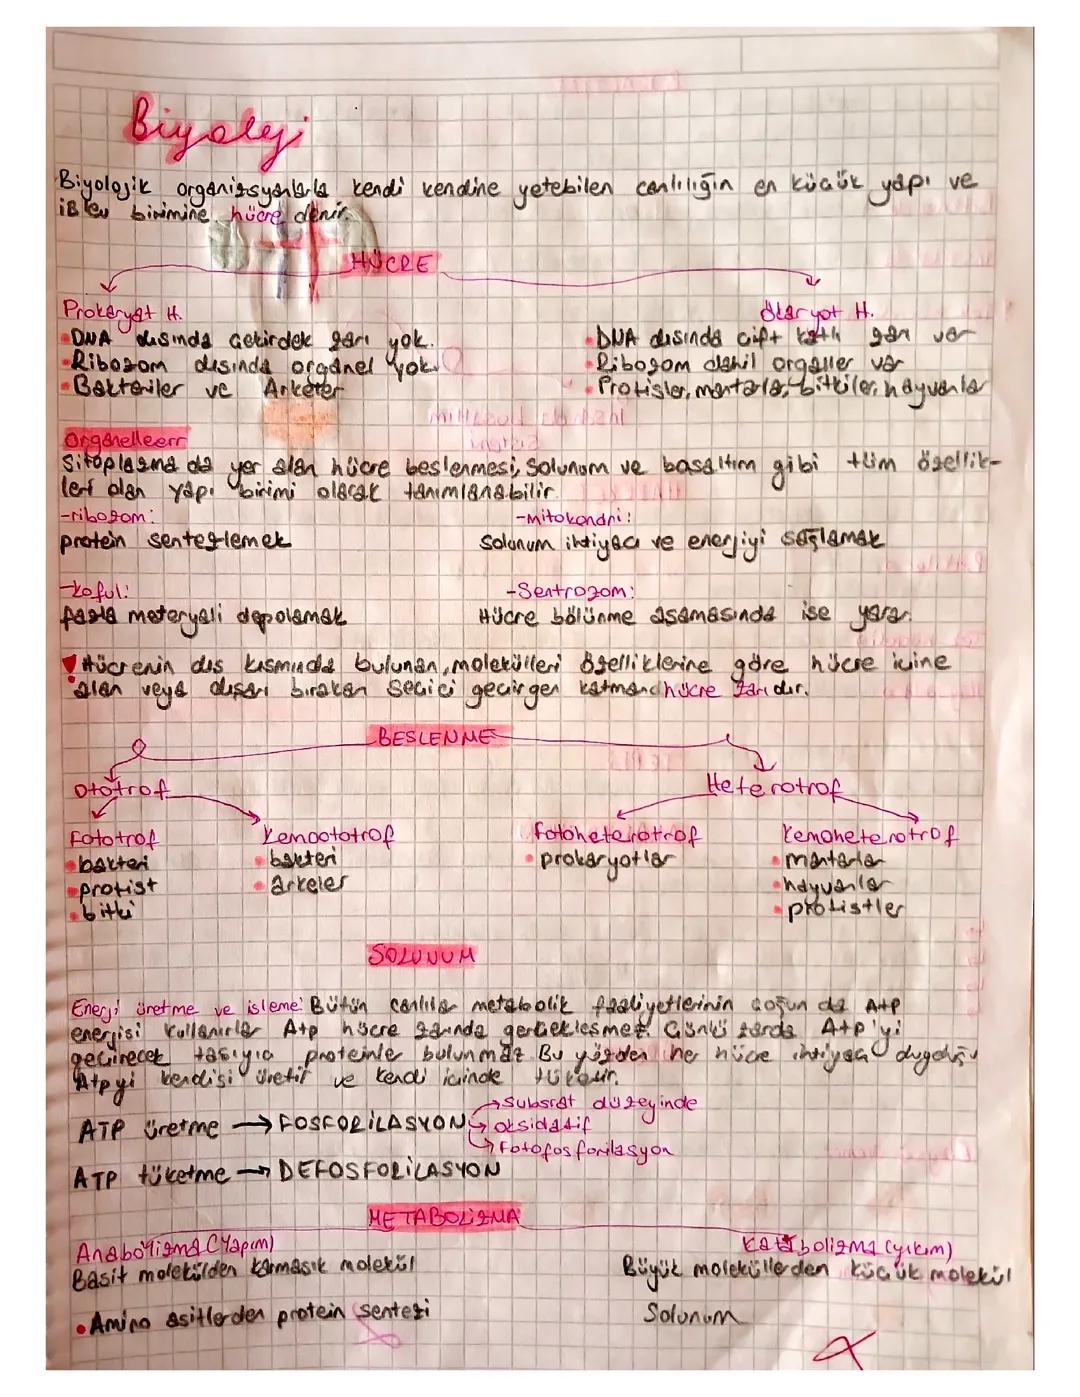 Biyoloji
Biyolojik organizsyonlarla kendi kendine yetebilen canlılığın en küçük yapı ve
işlev birimine hücre denir.
HÜCRE
Prokaryat H.
Ökaryot H.
•DNA dısında çekirdek zarı yok.
•DNA dısında çift katlı zarı var
•Ribozom dısında organel yok.
•Ribozom dahil organller var
•Bakteriler ve Arkeler
•Protisler, mantarlar, bitkiler, hayvanlar
Organelleerr
Sitoplazma da yer alan hücre beslenmesi, Solunum ve basaltım gibi tüm özellik-
leri olan yapı birimi olarak tanımlanabilir.
-ribozom:
-Mitokondri:
protein sentezlemek
Solunum ihtiyacı ve enerjiyi sağlamak
-koful:
-Sentrozom:
fazla materyali depolamak
Hücre bölünme asamasında ise yarar.
Hücrenin dıs kısmında bulunan, molekülleri özelliklerine göre hücre icine
alan veya dışarı bırakan Secici gecirgen katmana hücre zarı dır.
BESLENME
Ototrof
Heterotrof
Fototrof
Kemoototrof
fotoheterotrof
Kemoheterotrof
•bakteri
•bakteri
•prokaryotlar
•mantarlar
•protist
•arkeler
•hayvanlar
•bitki
•protistler
SOLUNUM
Enerji üretme ve isleme: Bütün canlılar metabolik faaliyetlerinin çoğun da Atp
energisi kullanırlar Atp hücre zarında gerçekleşmez. Çünkü zarda Atp'yi
geçirecek taşıyıcı proteinler bulunmaz Bu yüzden her hücre ihtiyacı duyduğu
Atpyi kendisi üretir ve kendi içinde tüketir.
→Subsrat düzeyinde
ATP üretme → FOSFORİLASYON → oksidatif
→ Fotofosforilasyon
ATP tüketme → DEFOSFORİLASYON
METABOLİZMA
Anabolizma (Yapım)
Katabolizma (yıkım)
Basit molekülden karmasık molekül
Büyük moleküllerden küçük molekül
•Amino asitlerden protein sentezi
Solunum